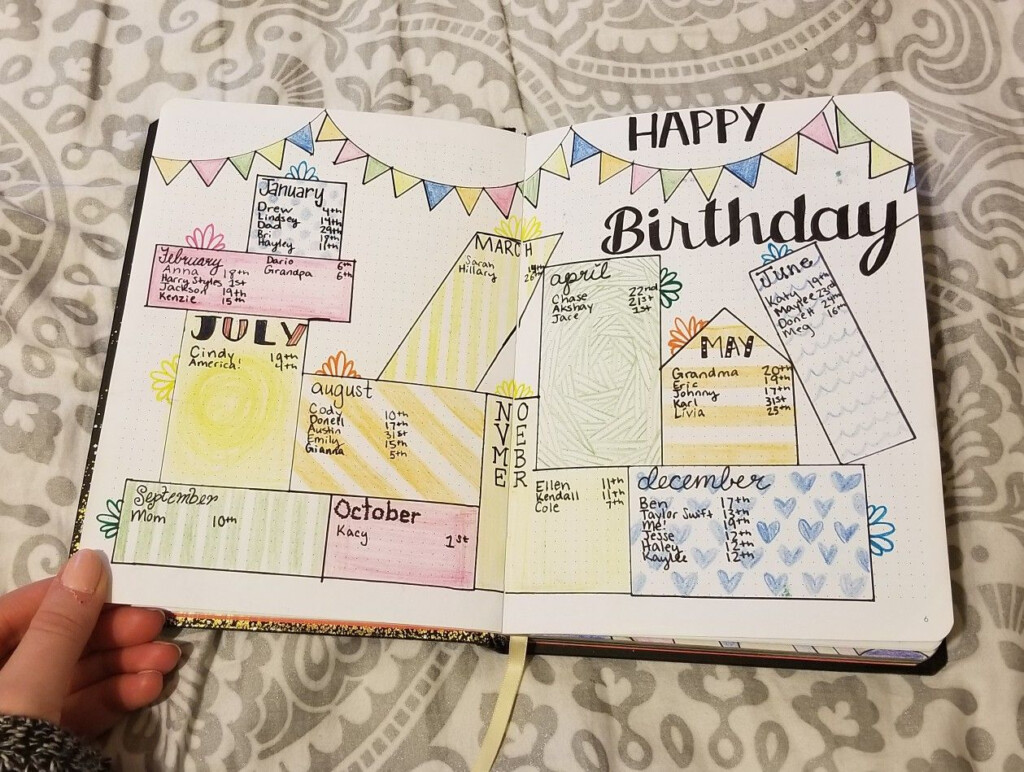 HAPPY
Birthday
January
Drew 4th
Lindsey 14th
Dad 29th
Bri
Hayley 11th
February
Anna 18th
Harry Styles 1st
Jackson 19th
Kenzie 15th
Dario 6th
Grandpa 6th
MARCH
Sarah
Hillary
april
Chase 22nd
Akshay 21st
Jace 1st
MAY
Grandma 20th
Eric 19th
Johnny 17th
Karl 31st
Livia 25th
June
Katy 19th
23rd
Donell
Meg 16th
JULY
Cindy 19th
America! 4th
august
Cody 10th
Donell 17th
Austin 31st
Emily 15th
Gianna 5th
September
Mom 10th
October
Kacy 1st
NOVEMBER
Ellen 11th
Kendall 11th
Cole 7th
december
Ben 17th
Taylor Swift 13th
me! 19th
Jesse 12th
Haley 12th
Kaylee 12th
6